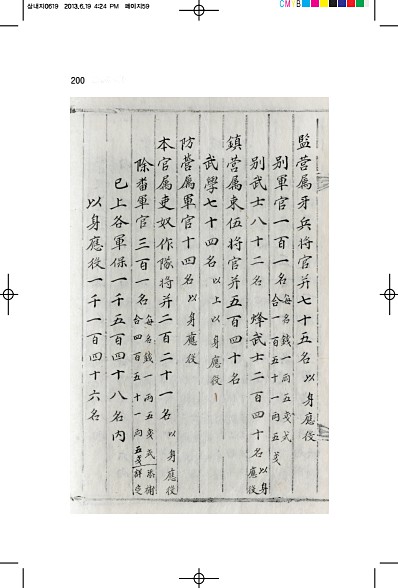 삼내지0619 2013.6.19 4:24 PM 페이지59
CM
200
監營属牙兵將官并七十五名 以身應役
別軍官一百一名 每名錢一両五戔式
合一百五十一両五戔
別武士八十二名 烽武士二百四十名 以身
應役
鎮營属束伍將官并五百四十名
武學七十四名 以上以身應役
防營属軍官十四名 以身應役
本官属吏奴作隊將并二百二十一名 以身應役
除番軍官三百一名 每名錢一両五戔式
合四百五十一両五戔詳定
已上各軍保一千五百四十八名内
以身應役一千一百四十六名